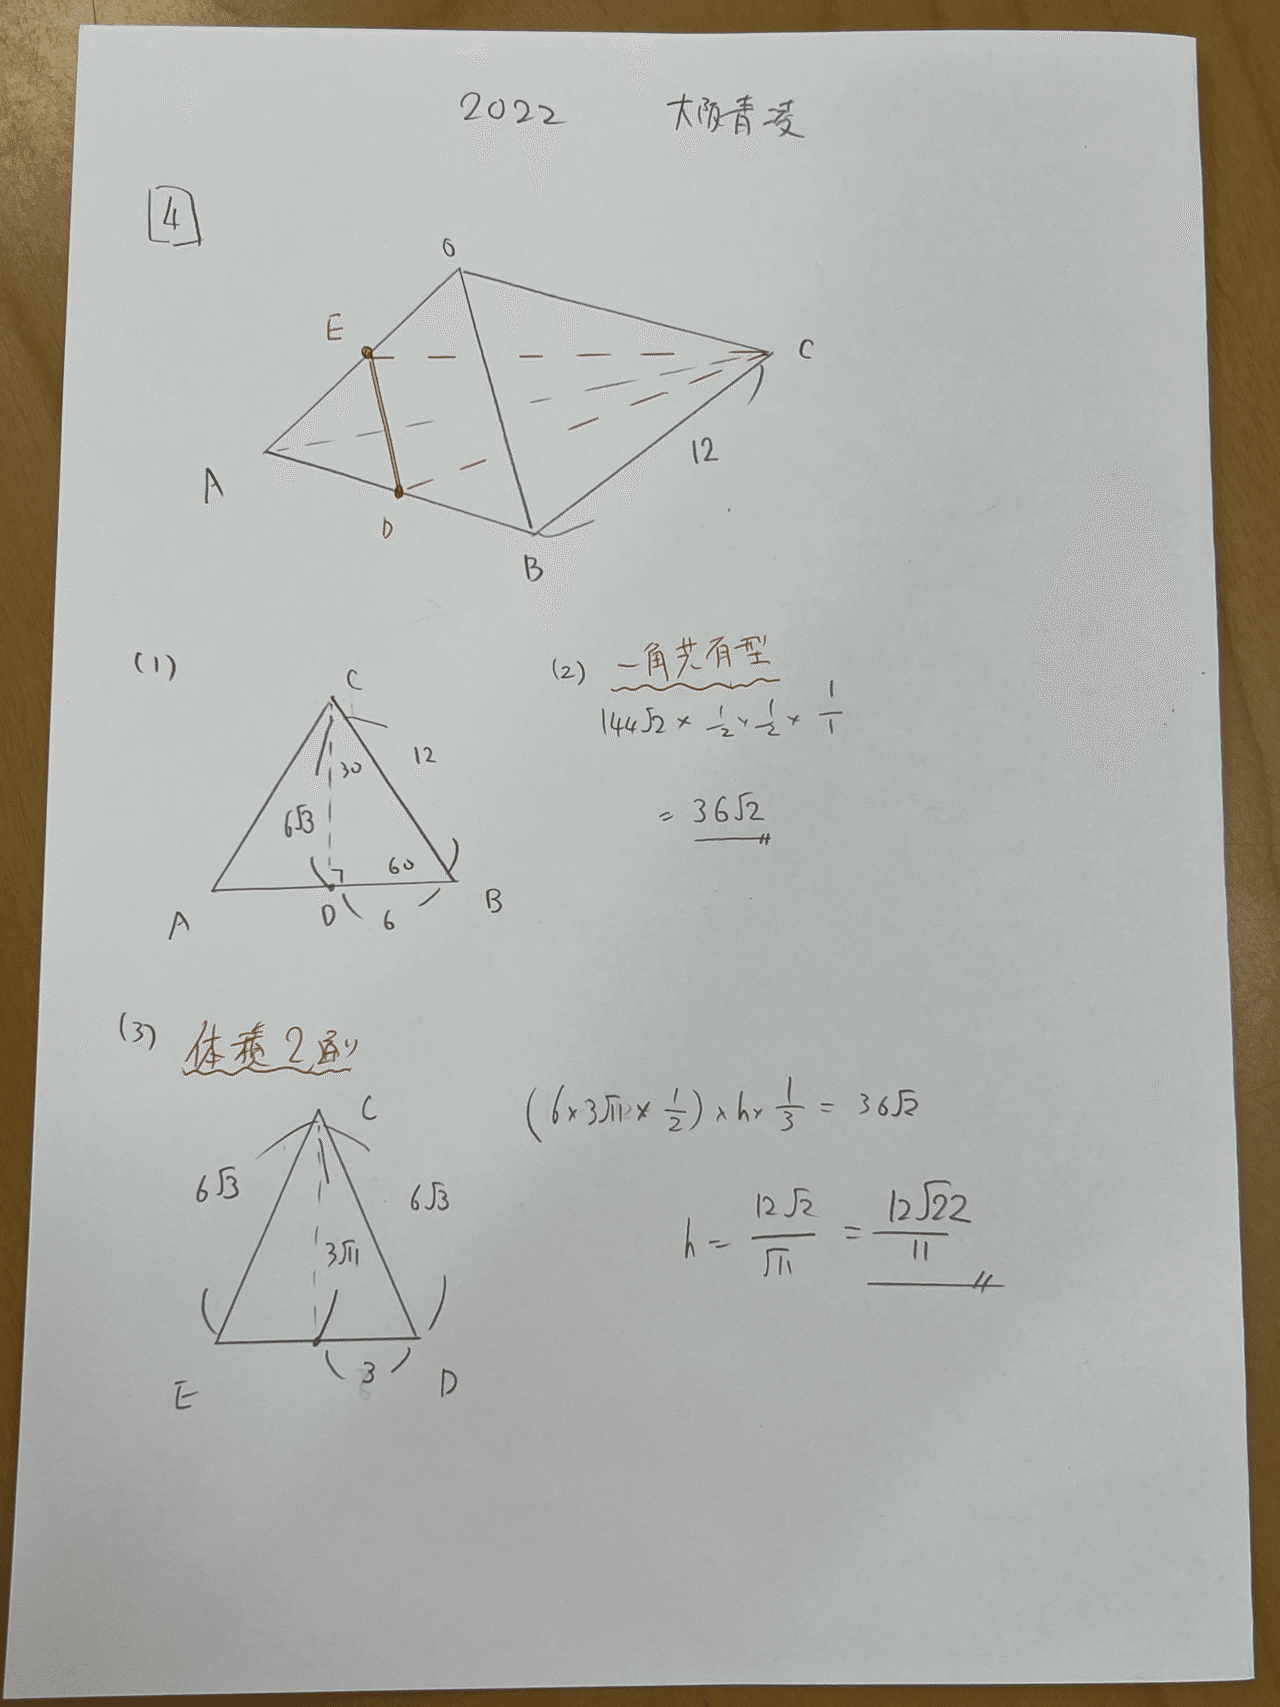 2022 大阪青凌
4
O
E
C
A
12
D
B
(1)
C
12
30
6√3
60
A
D
6
B
(2) 一角共有型
144√2 × 1/2 × 1/2 × 1/1
= 36√2
(3) 体積2通り
C
6√3
6√3
3√11
3
E
D
(6×3√11×1/2)×h×1/3 = 36√2
h = 12√2/√11 = 12√22/11